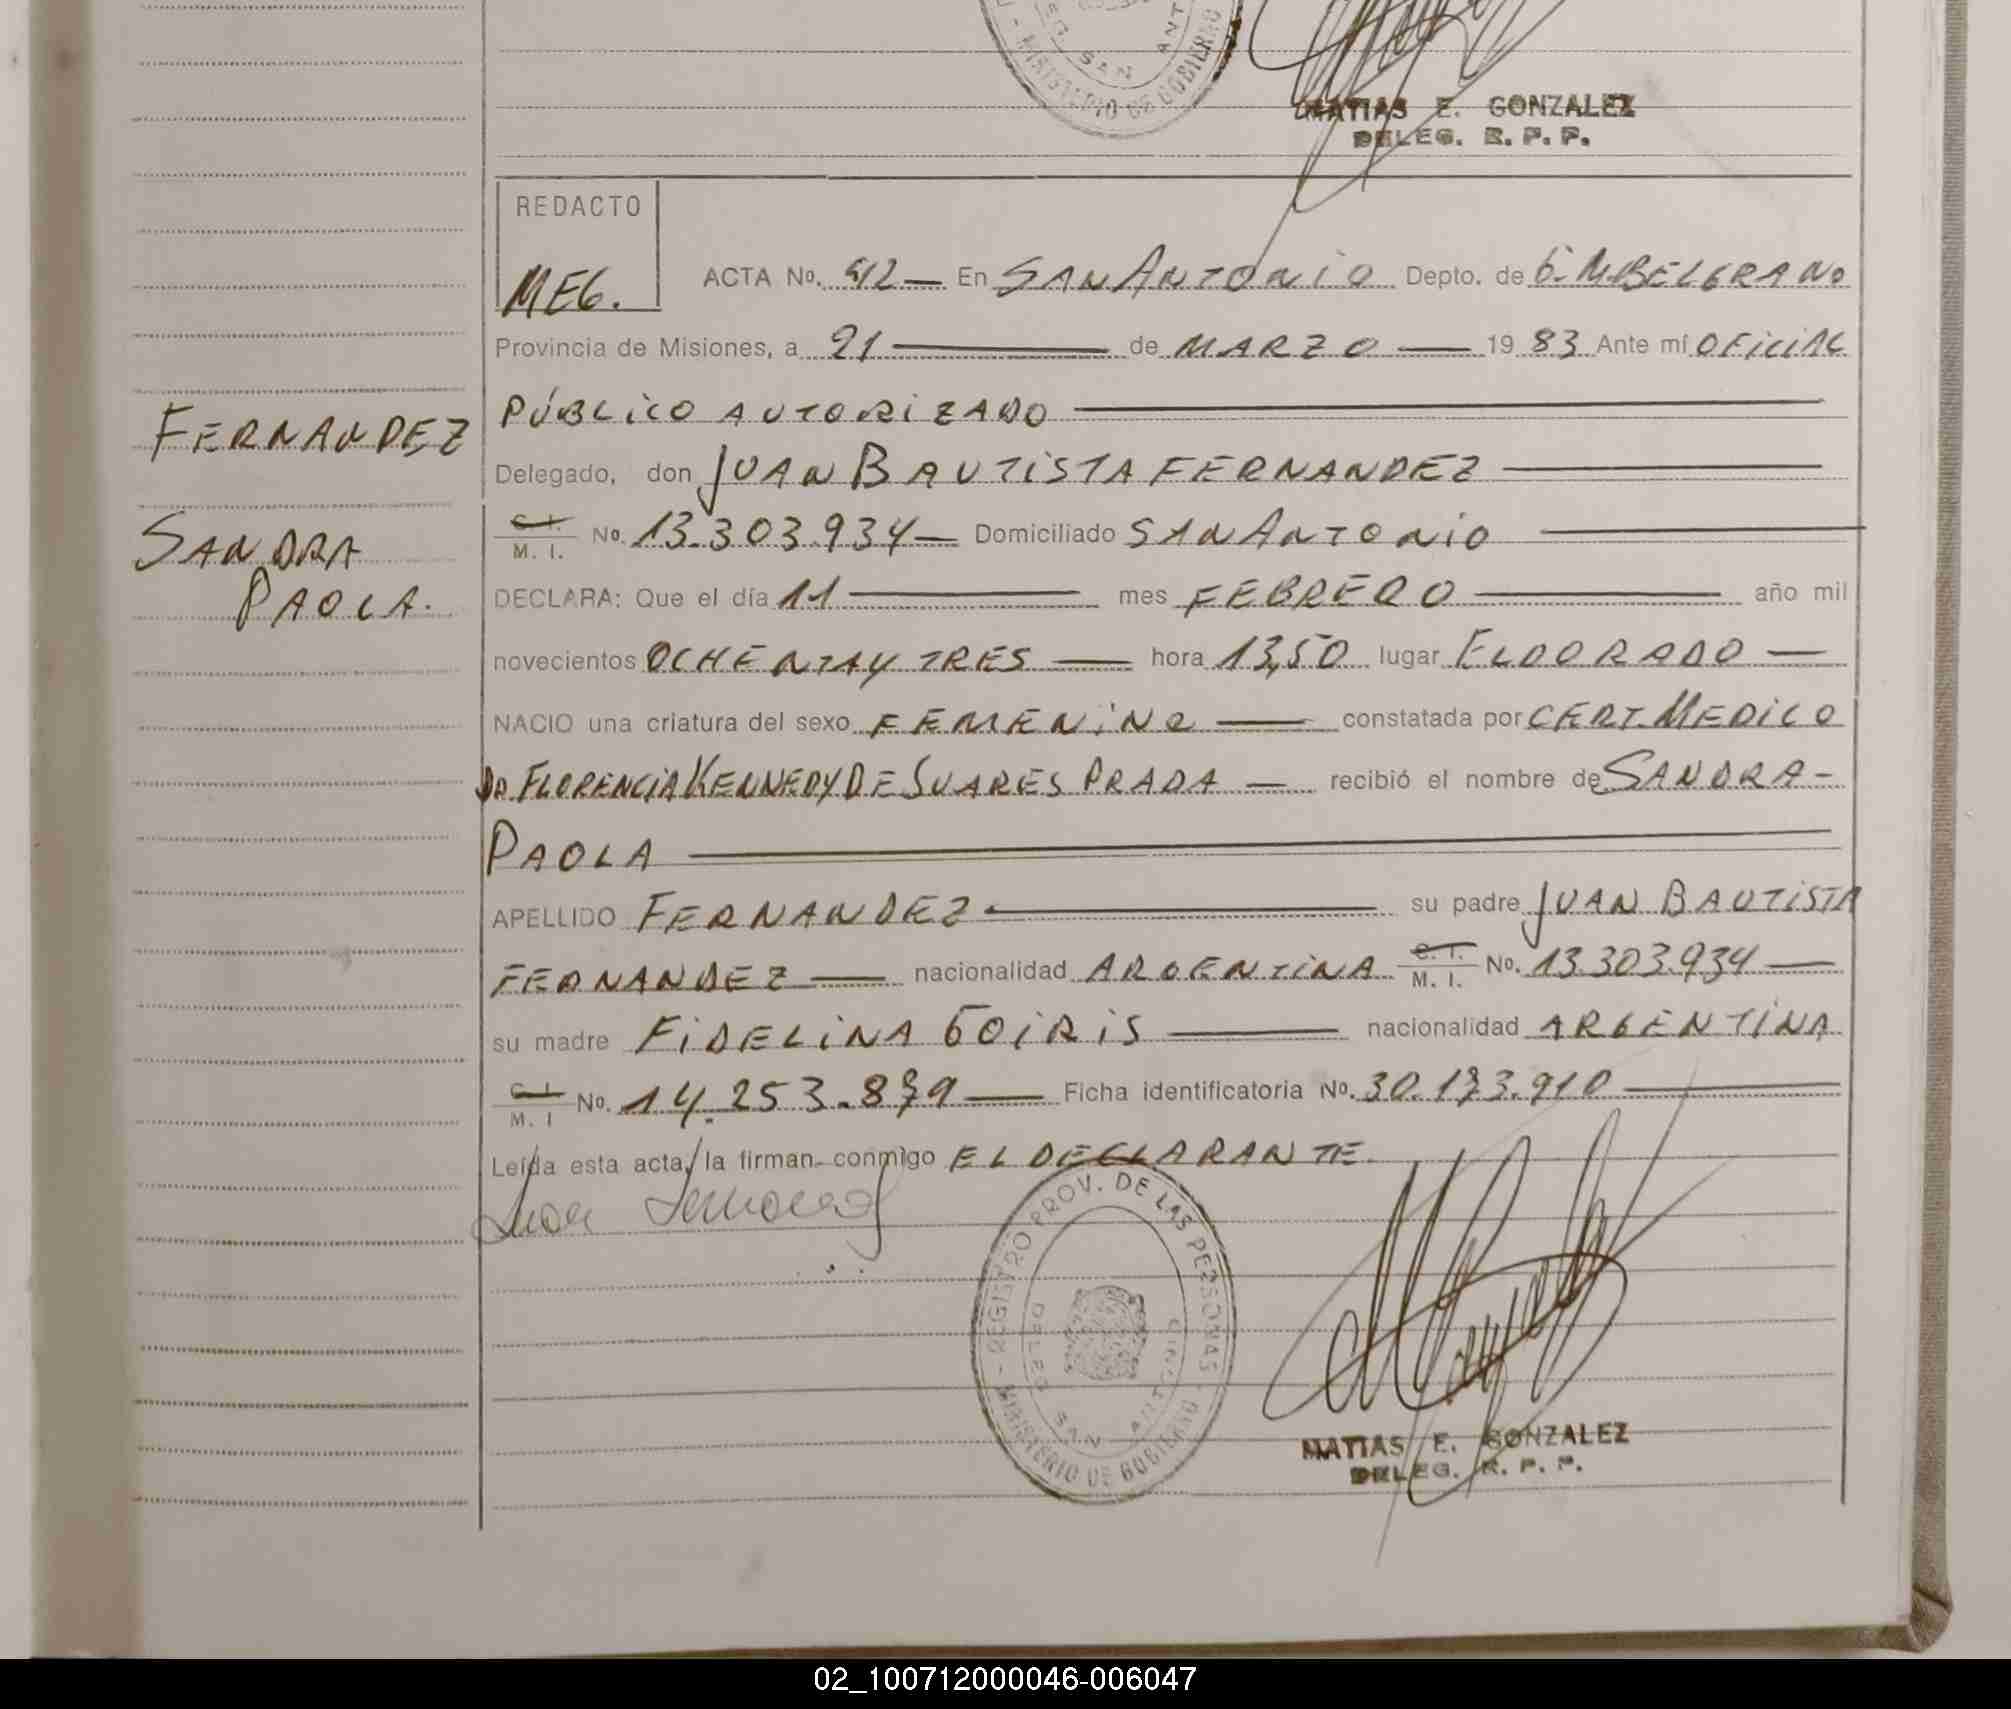 SAN ANT
MINISTERIO DE GOBIERNO
MATIAS E. GONZALEZ
DELEG. R. P. P.
REDACTO
MEG.
ACTA No. 42 — En SAN ANTONIO Depto. de G. M. BELGRANO
Provincia de Misiones, a 21 — de MARZO — 19 83 Ante mí OFICIAL
PÚBLICO AUTORIZADO —
FERNANDEZ
Delegado, don JUAN BAUTISTA FERNANDEZ —
C. I.
M. I. No. 13.303.934 — Domiciliado SAN ANTONIO —
SANDRA
PAOLA.
DECLARA: Que el día 11 — mes FEBRERO — año mil
novecientos OCHENTA Y TRES — hora 13,50 lugar ELDORADO —
NACIO una criatura del sexo FEMENINO — constatada por CERT. MEDICO
DR FLORENCIA KENNEDY DE SUARES PRADA — recibió el nombre de SANDRA -
PAOLA —
APELLIDO FERNANDEZ — su padre JUAN BAUTISTA
FERNANDEZ — nacionalidad ARGENTINA C. I. M. I. No. 13.303.934 —
su madre FIDELINA GOIRIS — nacionalidad ARGENTINA
C. I. M. I No. 14.253.879 — Ficha identificatoria No. 30.173.910 —
Leída esta acta, la firman conmigo EL DECLARANTE.
REGISTRO PROV. DE LAS PERSONAS
DELEG. SAN ANTONIO
MINISTERIO DE GOBIERNO
MATIAS E. GONZALEZ
DELEG. R. P. P.
02_100712000046-006047